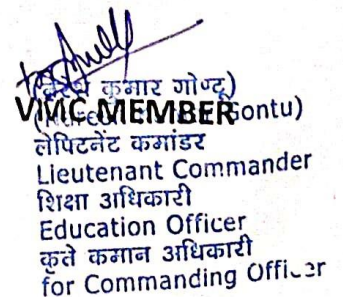 कुमार गोन्टू)
VIMC MEMBER
Gontu)
लेफ्टिनेंट कमांडर
Lieutenant Commander
शिक्षा अधिकारी
Education Officer
कृते कमान अधिकारी
for Commanding Officer